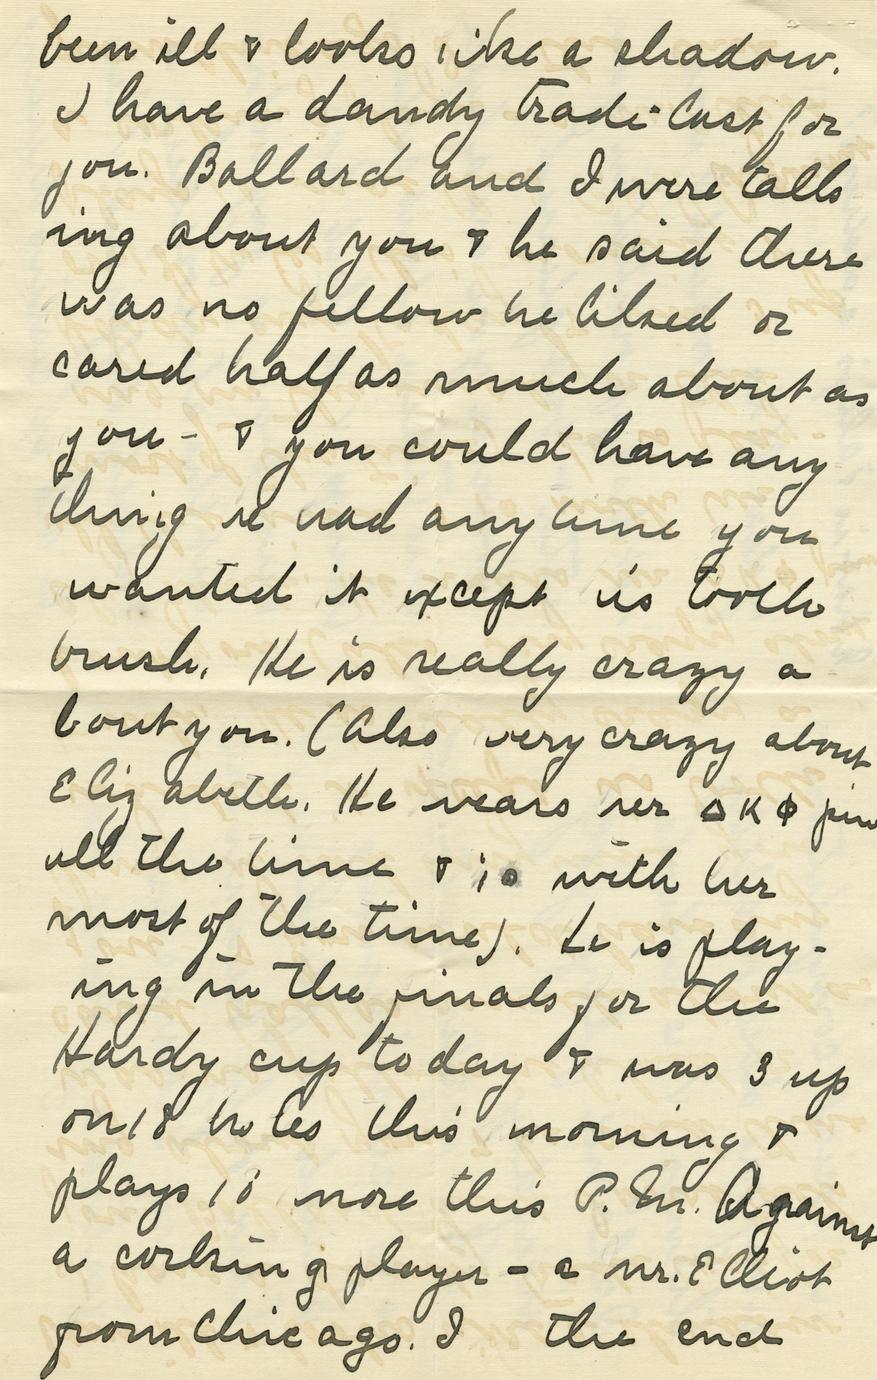 been ill & looks like a shadow.
I have a dandy trade-last for
you. Ballard and I were talk
ing about you & he said there
was no fellow he liked or
cared half as much about as
you - & you could have any
thing he had any time you
wanted it except his tooth
brush. He is really crazy a
bout you. (Also very crazy about
Elizabeth. He wears her Δ K Φ pin
all the time & is with her
most of the time). He is play-
ing in the finals for the
Hardy cup today & was 3 up
on 18 holes this morning &
plays 18 more this P.M. Against
a corking player - a Mr. Elliot
from Chicago. I the end